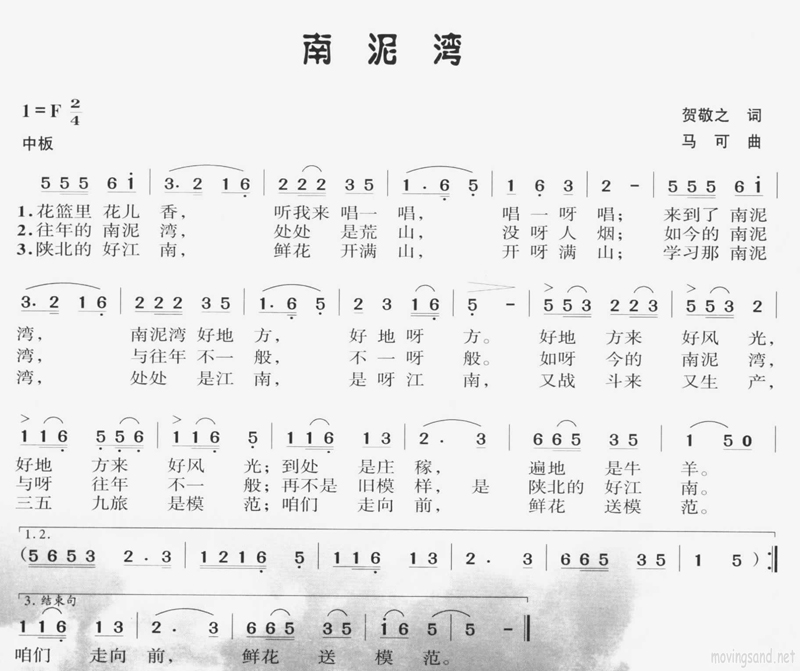 南泥湾
1=F 2/4
贺敬之 词
中板
马可 曲
555 6i | 3. 2 1 6 | 222 35 | 1. 6 5 | 1 6 3 | 2 - | 555 6i |
1.花篮里 花儿 香， 听我来 唱一 唱， 唱 一 呀 唱； 来到了 南泥
2.往年的 南泥 湾， 处处 是荒 山， 没 呀 人 烟； 如今的 南泥
3.陕北的 好江 南， 鲜花 开满 山， 开 呀 满 山； 学习那 南泥
3. 2 1 6 | 222 35 | 1. 6 5 | 2 3 16 | 5 - | 553 223 | 553 2 |
湾， 南泥湾 好地 方， 好 地 呀 方。 好地 方来 好风 光，
湾， 与往年 不一 般， 不 一 呀 般。 如呀 今的 南泥 湾，
湾， 处处 是江 南， 是 呀 江 南， 又战 斗来 又生 产，
116 556 | 116 5 | 116 13 | 2. 3 | 665 35 | 1 50 |
好地 方来 好风 光； 到处 是庄 稼， 遍地 是牛 羊。
与呀 往年 不一 般； 再不是 旧模 样， 是 陕北的 好江 南。
三五 九旅 是模 范； 咱们 走向 前， 鲜花 送模 范。
1.2.
(5653 2. 3 | 1216 5 | 116 13 | 2. 3 | 665 35 | 1 5) :‖
3. 结束句
116 13 | 2. 3 | 665 35 | i 6 5 | 5 - ‖
咱们 走向 前， 鲜花 送 模 范。
movingsand.net